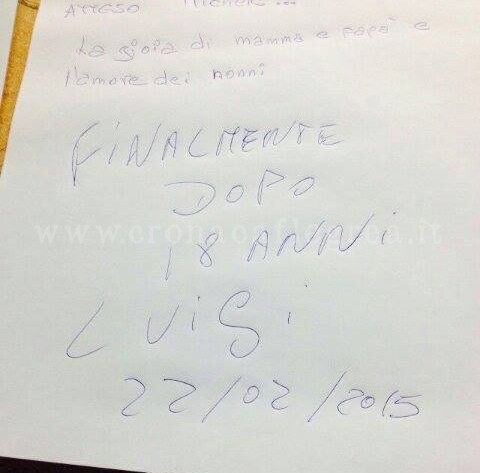 ATTESO MICHELE...
La gioia di mamma e papà e
l'amore dei nonni
FiNALMENTE
DOPO
www.cronacaflegrea.it
18 ANNi
LUiGi
22/02/2015